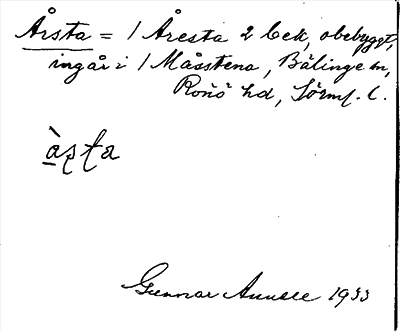 Årsta = / Åresta 2 bek, obebyggt,
ingår i / Måsstena, Bälinge sn,
Rönö hd, Sörml. l.
Gunnar 1933